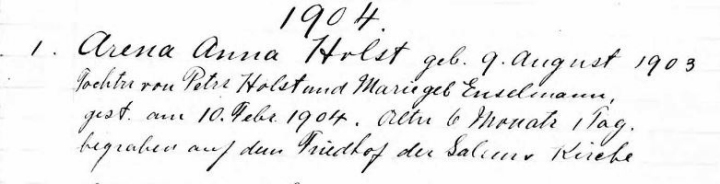 1904.
1. Arena Anna Holst geb. 9. August 1903
Tochter von Peter Holst und Marie geb Enselmann,
gest. am 10. Febr 1904. Alter 6 Monate 1 Tag.
begraben auf dem Friedhof der Salems Kirche